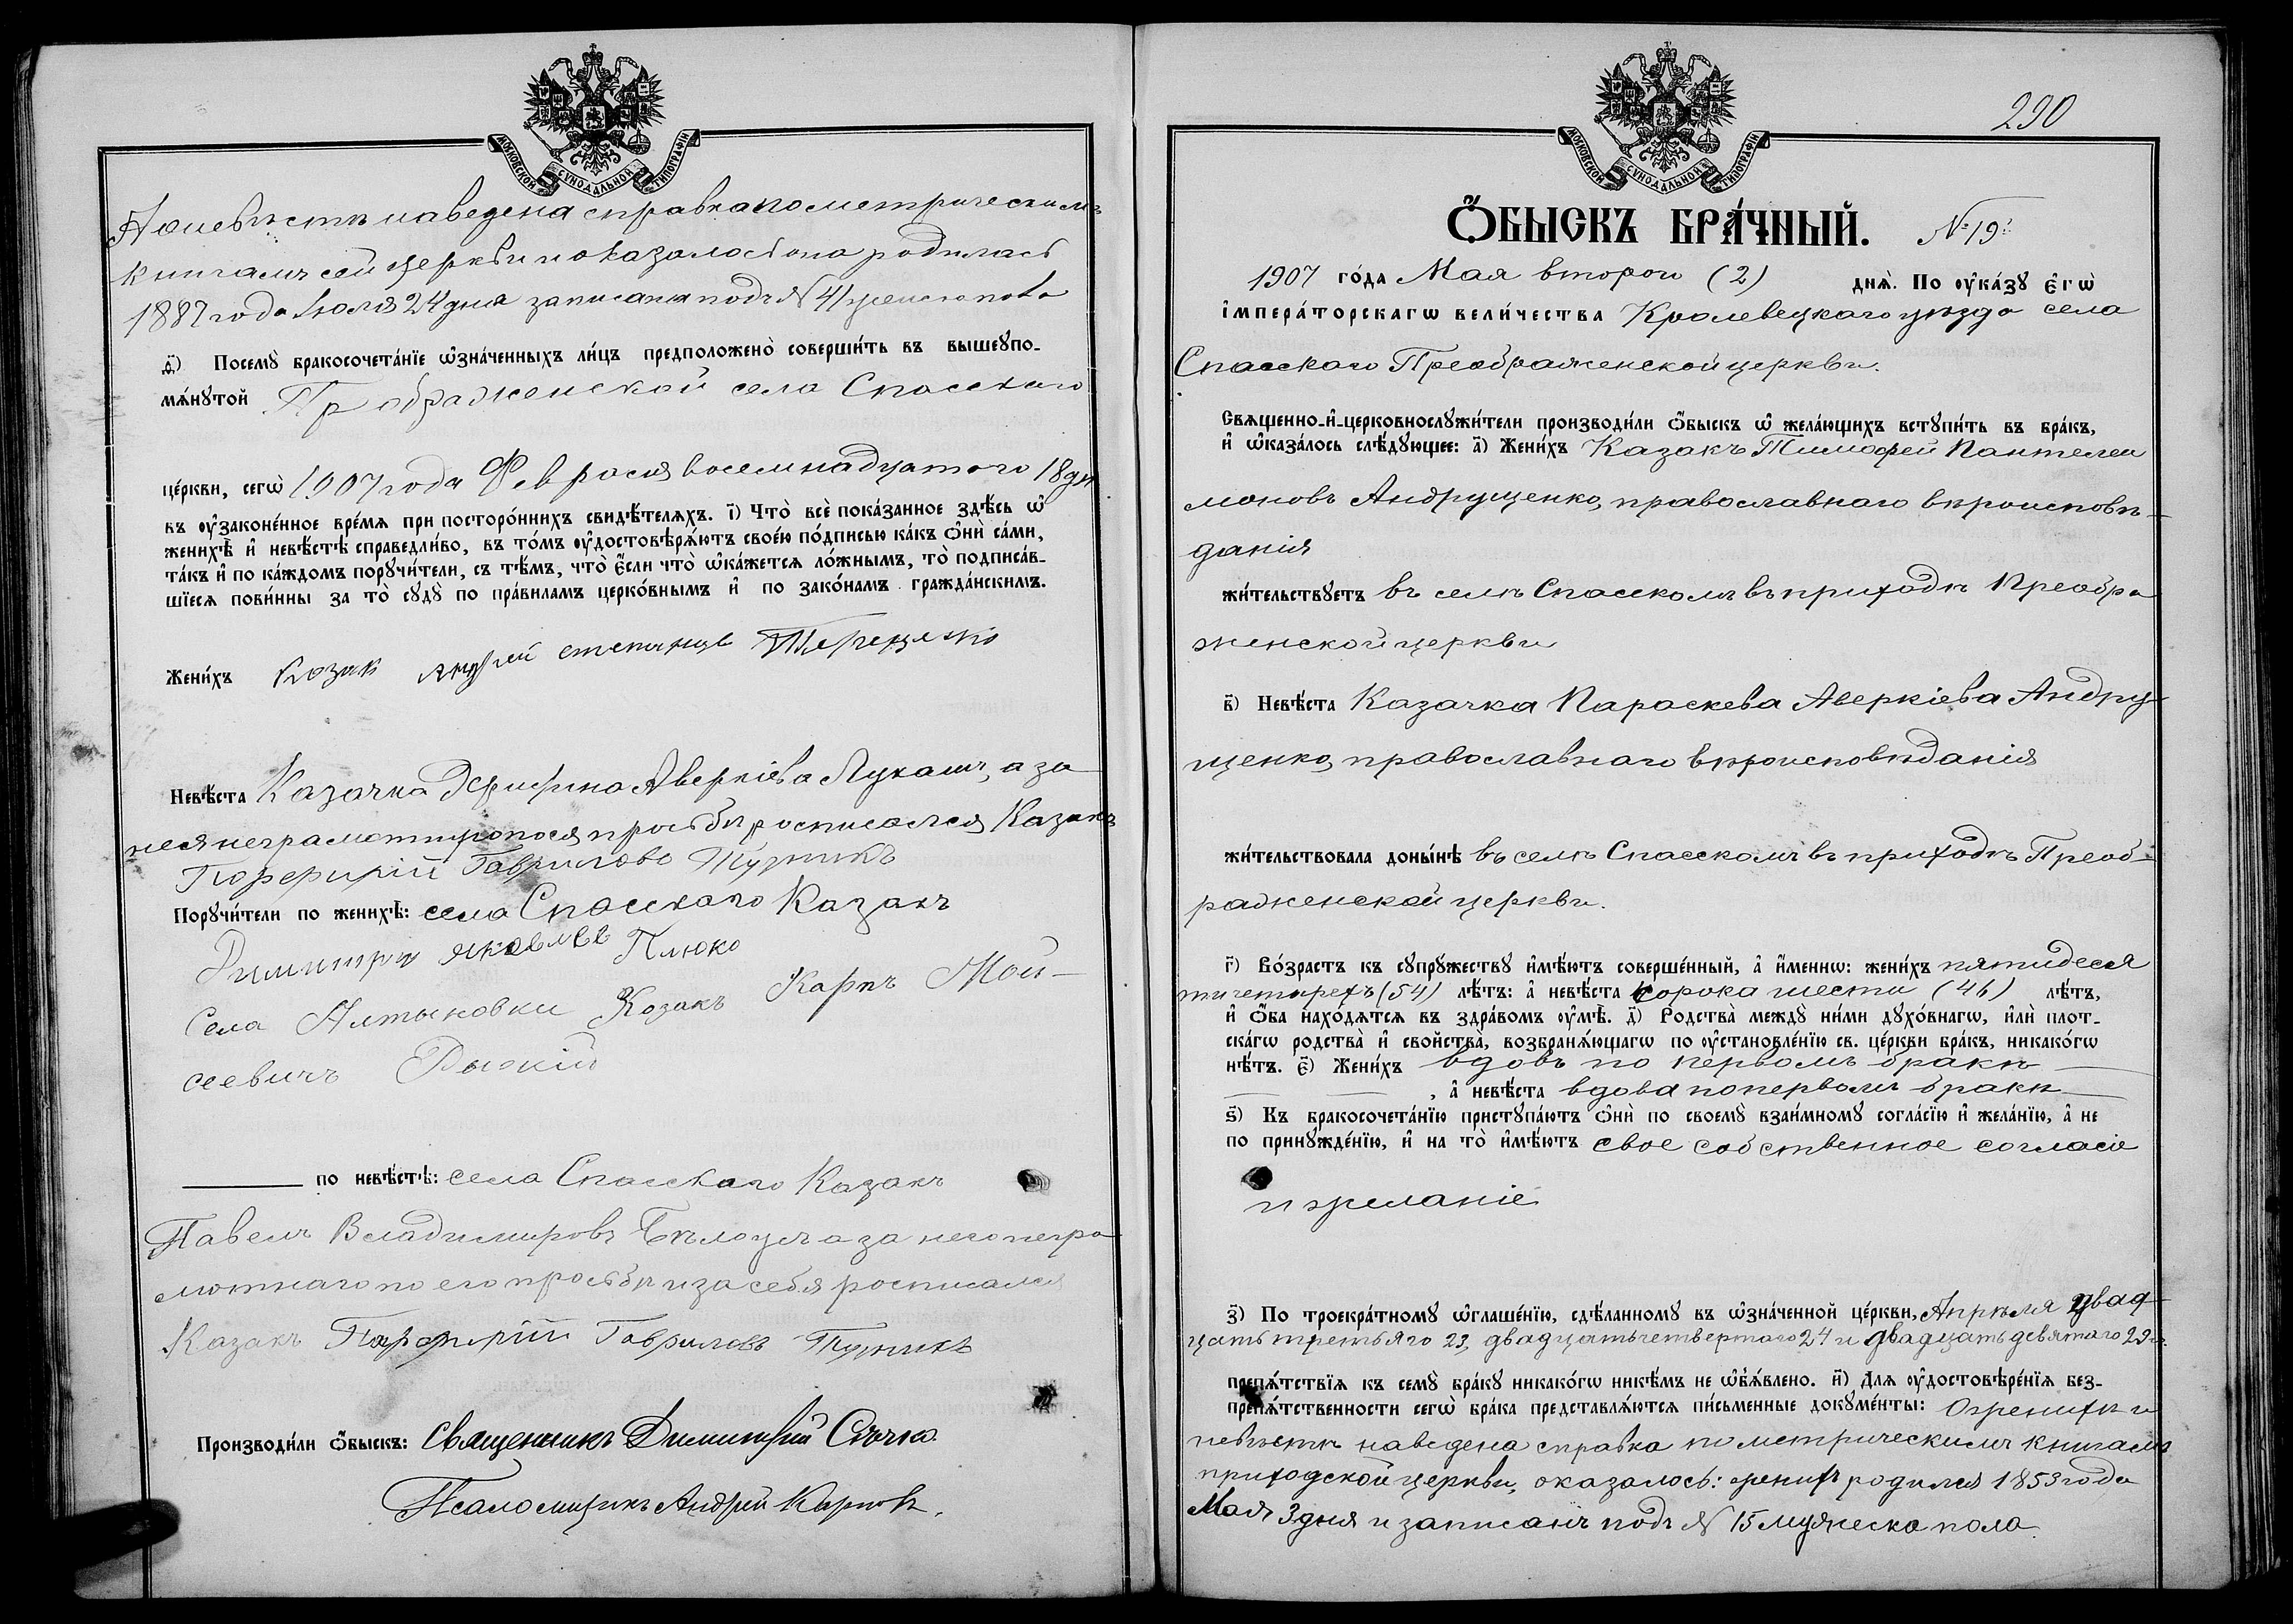 МОСКОВСКОЙ СѴНОДАЛЬНОЙ ТИПОГРАФІИ
А о невѣстѣ наведена справка по метрическимъ
книгамъ сей церкви и оказалось она родилась
1887 года Іюля 24 дня записана подъ № 41 женск пола
д҃) Посемꙋ̀ бракосочета́нїе ѡ҆зна́ченныхъ ли́цъ предположено̀ соверши́ть въ вышеꙋпо-
мѧ́нꙋтой Преображенской села Спасскаго
це́ркви, сегѡ̀ 1907 года Февраля восемнадцатого 18 дн
въ ѹ҆законе́нное вре́мѧ при посторо́ннихъ свидѣ́телѧхъ. і҃) Что̀ всѐ пока́занное здѣ́сь ѡ҆
женихѣ̀ и҆ невѣ́стѣ справедли́во, въ то́мъ ѹ҆достовѣрѧ́ютъ свое́ю по́дписью ка́къ ѻ҆нѝ са́ми,
та́къ и҆ по ка́ждомъ порꙋчи́тели, съ тѣ́мъ, что̀ є҆́сли что̀ ѡ҆ка́жетсѧ ло́жнымъ, то̀ подписа́в-
шїесѧ пови́нны за то̀ сꙋдꙋ̀ по пра́виламъ церко́внымъ и҆ по зако́намъ гражда́нскимъ.
Жени́хъ Козак Андрей
Невѣ́ста Казачка Аверкіева Лукашъ, а за
нея неграмотную по ея просьбѣ росписался Казакъ
Порфирій Гавриловъ
Порꙋчи́тели по женихѣ̀: села Спасскаго Казакъ
Димитри яковлевъ Плюко
Села Алтыновки Козакъ Карпъ Мои-
сеевичъ
по невѣ́стѣ: села Спасскаго Казакъ
Павелъ Владимировъ Бѣлоусъ а за него негра
мотнаго по его просьбѣ и за себя росписался
Казакъ Порфирій Гавриловъ
Производи́ли ѻ҆́быскъ: Священникъ Димитрій
Псаломщикъ Андрей Карповъ.
МОСКОВСКОЙ СѴНОДАЛЬНОЙ ТИПОГРАФІИ
290
Ѻ҆БЫСКЪ БРА́ЧНЫЙ. № 19й
1907 го́да Мая второй (2) днѧ̀. По ѹ҆ка́зꙋ є҆гѡ̀
і҆мпера́торскагѡ вели́чества Кролевецкаго уѣзда села
Спасскаго Преображенской церкви.
Свѧщенно-и҆-церковнослꙋжи́тели производи́ли ѻ҆́быскъ ѡ҆ жела́ющихъ встꙋпи́ть въ бра́къ,
и҆ ѡ҆каза́лось слѣ́дꙋющее: а҃) Жени́хъ Казакъ Тимофей Пантелеи
моновъ Андрущенко, православнаго вѣроисповѣ-
данія
жи́тельствꙋетъ въ селѣ Спасскомъ въ приходѣ Преобра
женской церкви
в҃) Невѣ́ста Казачка Параскева Аверкіева Андру-
щенко, православнаго вѣроисповѣданія
жи́тельствовала доны́нѣ въ селѣ Спасскомъ въ приходѣ Преоб-
раженской церкви.
г҃) Во́зрастъ къ сꙋпрꙋ́жествꙋ и҆мѣ́ютъ соверше́нный, а҆ и҆́меннѡ: жени́хъ пятидеся
тичетырехъ (54) лѣ́тъ: а҆ невѣ́ста сорока шести (46) лѣ́тъ,
и҆ ѻ҆́ба нахо́дѧтсѧ въ здра́вомъ ѹ҆мѣ̀. д҃) Родства̀ междꙋ ни́ми дꙋхо́внагѡ, и҆лѝ плот-
ска́гѡ родства̀ и҆ сво́йства̀, возбранѧ́ющагѡ по ѹ҆становле́нїю св. це́ркви бра́къ, никако́гѡ
нѣ́тъ. є҃) Жени́хъ вдовъ по первомъ бракѣ
, а҆ невѣ́ста вдова по первомъ бракѣ
ѕ҃) Къ бракосочета́нїю пристꙋпа́ютъ ѻ҆нѝ по своемꙋ̀ взаи́мномꙋ согла́сїю и҆ жела́нїю, а҆ не
по принꙋжде́нїю, и҆ на то̀ и҆мѣ́ютъ свое собственное согласіе
и желаніе
з҃) По троекра́тномꙋ ѡ҆глаше́нїю, сдѣ́ланномꙋ въ ѡ҆зна́ченной це́ркви, Апрѣля двад-
цать третьяго 23, двадцать четвертаго 24 и двадцать девятаго 29го.
препѧ́тствїѧ къ семꙋ̀ бра́кꙋ никако́гѡ никѣ́мъ не ѡ҆б̾ѧ́влено. и҃) Длѧ ѹ҆достовѣре́нїѧ без-
препѧ́тственности сегѡ̀ бра́ка представлѧ́ютсѧ пи́сьменные докꙋме́нты: О женихѣ и
невѣстѣ наведена справка по метрическимъ книгамъ
приходской церкви, оказалось: женихъ родился 1853 года
Мая 3 дня и записанъ подъ № 15 мужеска пола.